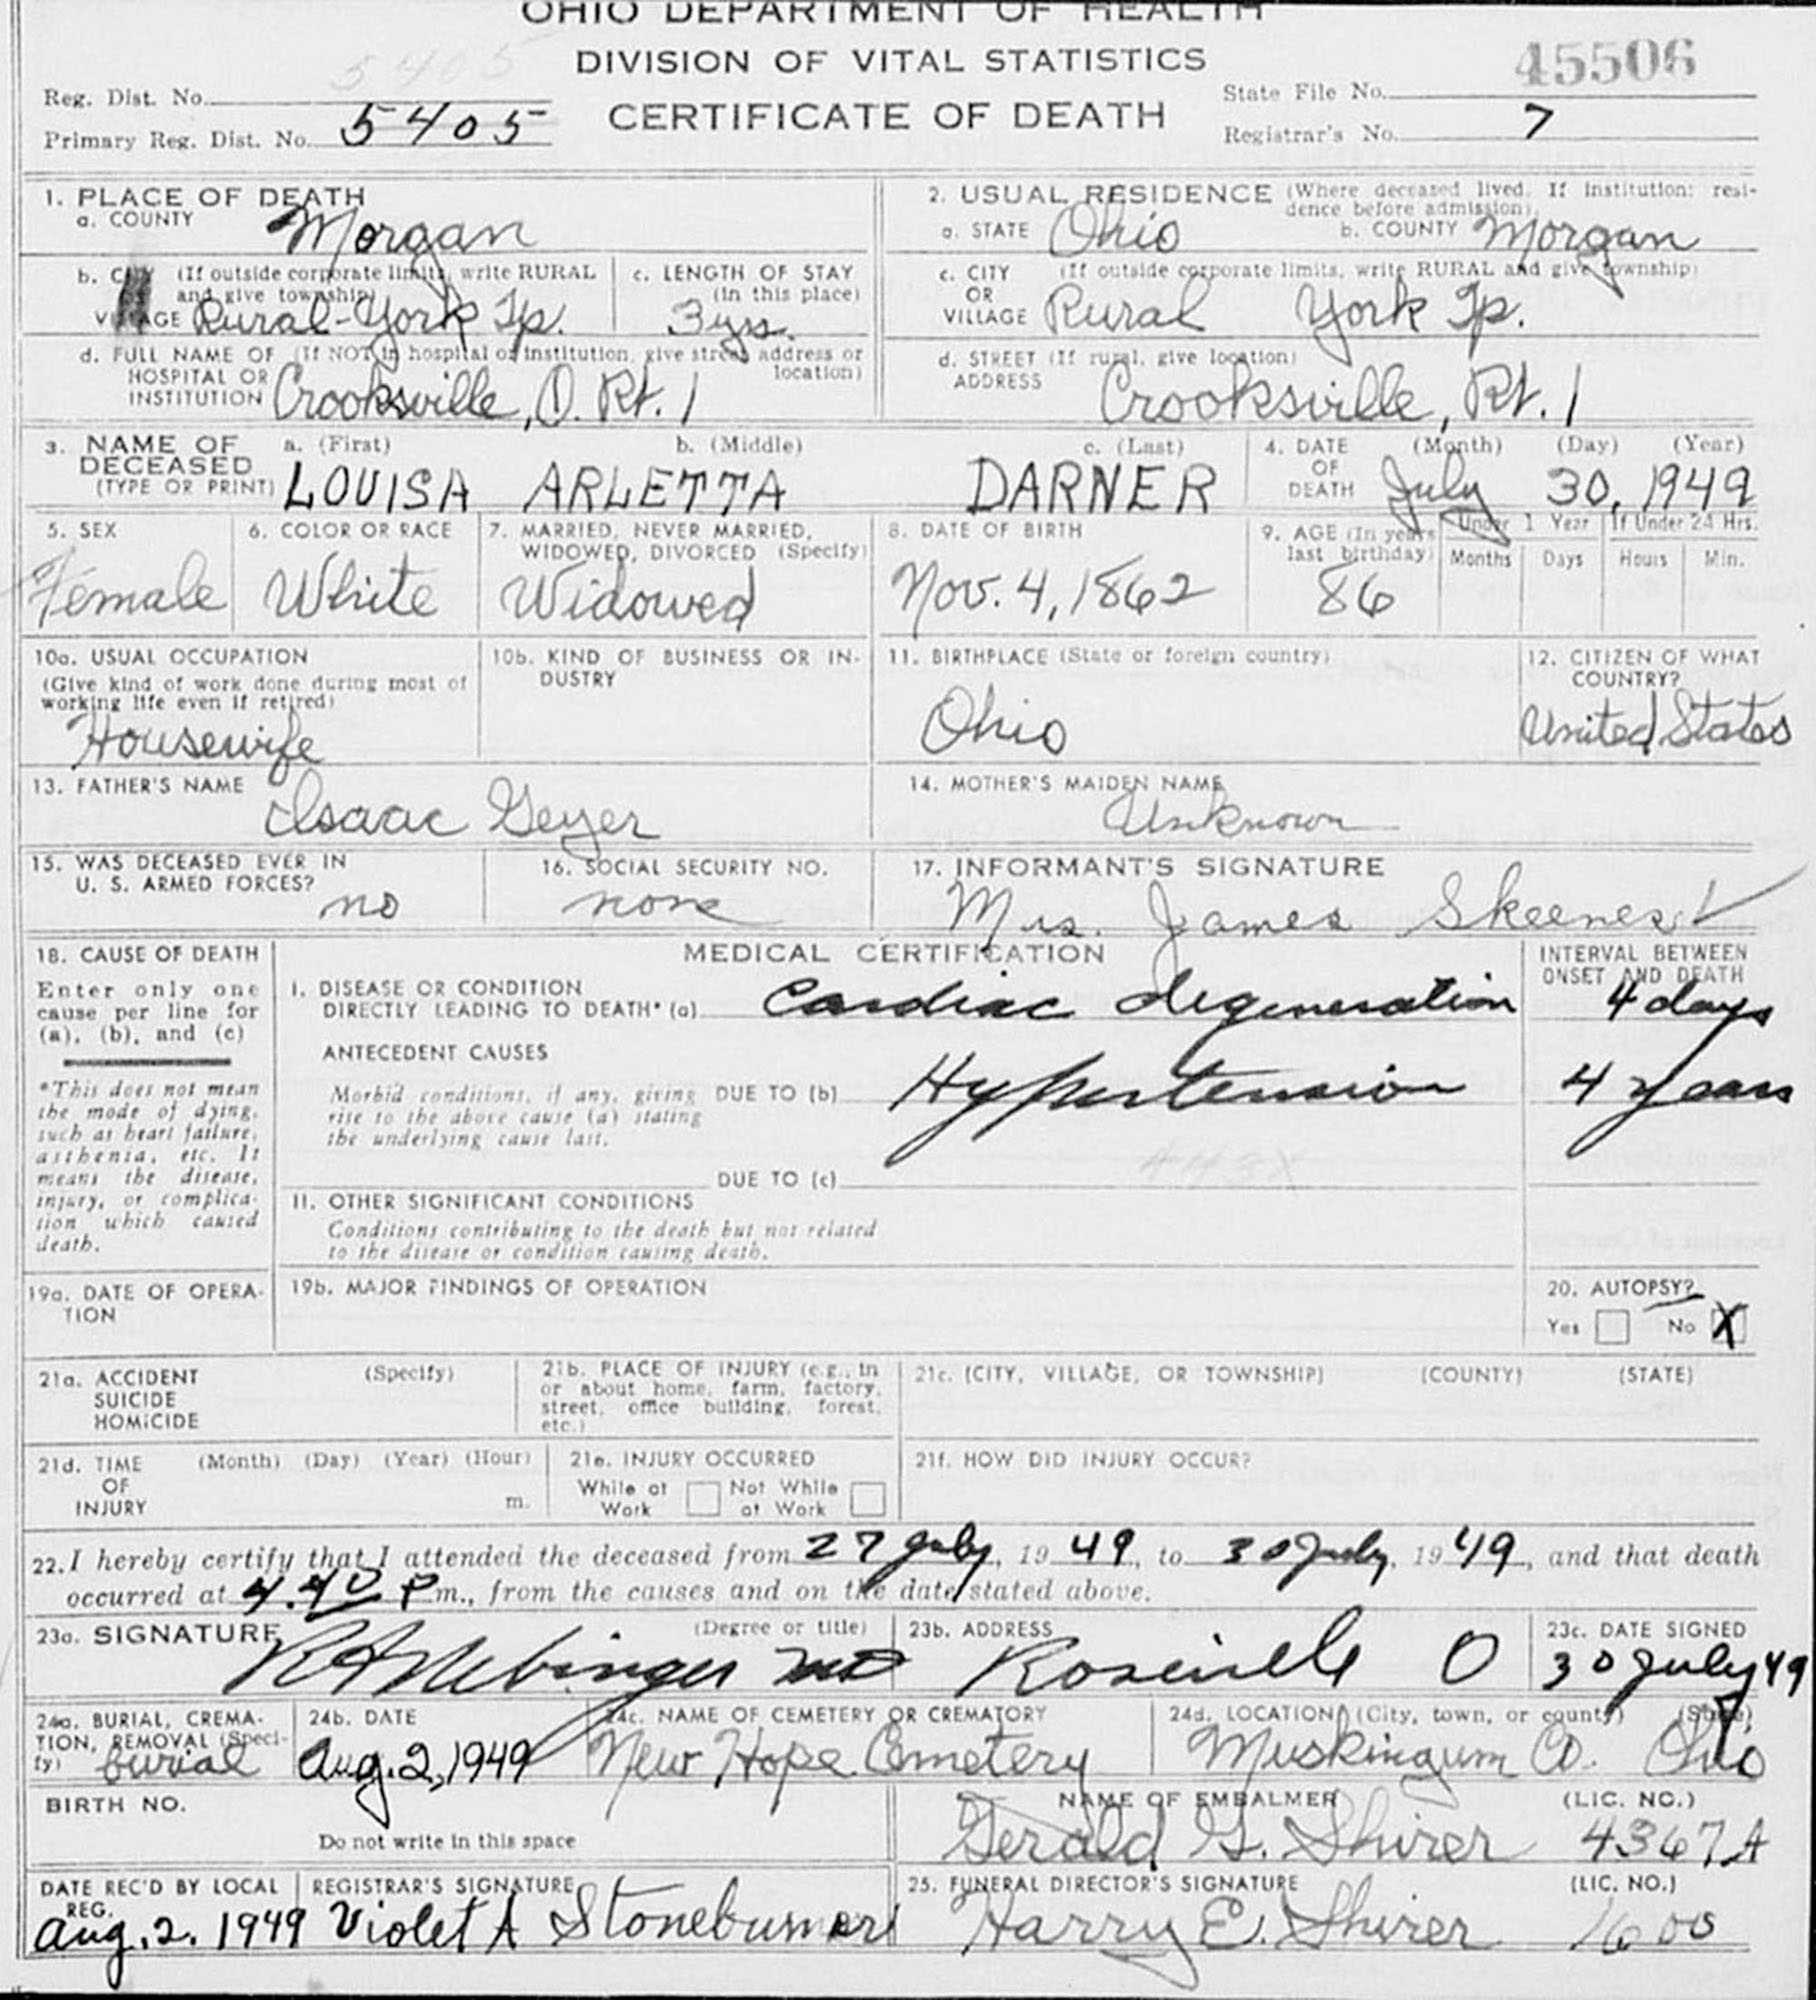 OHIO DEPARTMENT OF HEALTH
DIVISION OF VITAL STATISTICS
CERTIFICATE OF DEATH
5405
Reg. Dist. No.
Primary Reg. Dist. No. 5405
45506
State File No.
Registrar's No. 7
1. PLACE OF DEATH
a. COUNTY Morgan
b. CITY (If outside corporate limits, write RURAL
and give township)
VILLAGE Rural-York Tp.
c. LENGTH OF STAY
(in this place)
3 yrs.
d. FULL NAME OF (If NOT in hospital or institution, give street address or
HOSPITAL OR location)
INSTITUTION Crooksville, O. Rt. 1
2. USUAL RESIDENCE (Where deceased lived. If institution: resi-
dence before admission).
a. STATE Ohio b. COUNTY Morgan
c. CITY (If outside corporate limits, write RURAL and give township)
OR
VILLAGE Rural York Tp.
d. STREET (If rural, give location)
ADDRESS Crooksville, Rt. 1
3. NAME OF a. (First) b. (Middle) c. (Last)
DECEASED
(TYPE OR PRINT) LOUISA ARLETTA DARNER
4. DATE (Month) (Day) (Year)
OF
DEATH July 30, 1949
5. SEX
Female
6. COLOR OR RACE
White
7. MARRIED, NEVER MARRIED,
WIDOWED, DIVORCED (Specify)
Widowed
8. DATE OF BIRTH
Nov. 4, 1862
9. AGE (In years
last birthday)
86
Under 1 Year
Months Days
If Under 24 Hrs.
Hours Min.
10a. USUAL OCCUPATION
(Give kind of work done during most of
working life even if retired)
Housewife
10b. KIND OF BUSINESS OR IN-
DUSTRY
11. BIRTHPLACE (State or foreign country)
Ohio
12. CITIZEN OF WHAT
COUNTRY?
United States
13. FATHER'S NAME
Isaac Geyer
14. MOTHER'S MAIDEN NAME
Unknown
15. WAS DECEASED EVER IN
U. S. ARMED FORCES?
no
16. SOCIAL SECURITY NO.
none
17. INFORMANT'S SIGNATURE
Mrs. James Skeenes
18. CAUSE OF DEATH
Enter only one
cause per line for
(a), (b), and (c)
*This does not mean
the mode of dying,
such as heart failure,
asthenia, etc. It
means the disease,
injury, or complica-
tion which caused
death.
MEDICAL CERTIFICATION
INTERVAL BETWEEN
ONSET AND DEATH
I. DISEASE OR CONDITION
DIRECTLY LEADING TO DEATH* (a) Cardiac degeneration 4 days
ANTECEDENT CAUSES
Morbid conditions, if any, giving DUE TO (b) Hypertension 4 years
rise to the above cause (a) stating
the underlying cause last.
443X
DUE TO (c)
II. OTHER SIGNIFICANT CONDITIONS
Conditions contributing to the death but not related
to the disease or condition causing death.
19a. DATE OF OPERA-
TION
19b. MAJOR FINDINGS OF OPERATION
20. AUTOPSY?
Yes No X
21a. ACCIDENT (Specify)
SUICIDE
HOMICIDE
21b. PLACE OF INJURY (e.g., in
or about home, farm, factory,
street, office building, forest,
etc.)
21c. (CITY, VILLAGE, OR TOWNSHIP) (COUNTY) (STATE)
21d. TIME (Month) (Day) (Year) (Hour)
OF
INJURY m.
21e. INJURY OCCURRED
While at Not While
Work at Work
21f. HOW DID INJURY OCCUR?
22. I hereby certify that I attended the deceased from 27 July, 1949, to 30 July, 1949, and that death
occurred at 4.40 P m., from the causes and on the date stated above.
23a. SIGNATURE (Degree or title)
MD
23b. ADDRESS
Roseville O
23c. DATE SIGNED
30 July 49
24a. BURIAL, CREMA-
TION, REMOVAL (Speci-
fy) burial
24b. DATE
Aug. 2, 1949
24c. NAME OF CEMETERY OR CREMATORY
New Hope Cemetery
24d. LOCATION (City, town, or county) (State)
Muskingum Co. Ohio
BIRTH NO.
Do not write in this space
NAME OF EMBALMER (LIC. NO.)
Gerald G. Shirer 4367A
DATE REC'D BY LOCAL
REG.
Aug. 2. 1949
REGISTRAR'S SIGNATURE
Violet A Stoneburner
25. FUNERAL DIRECTOR'S SIGNATURE (LIC. NO.)
Harry E. Shirer 1600